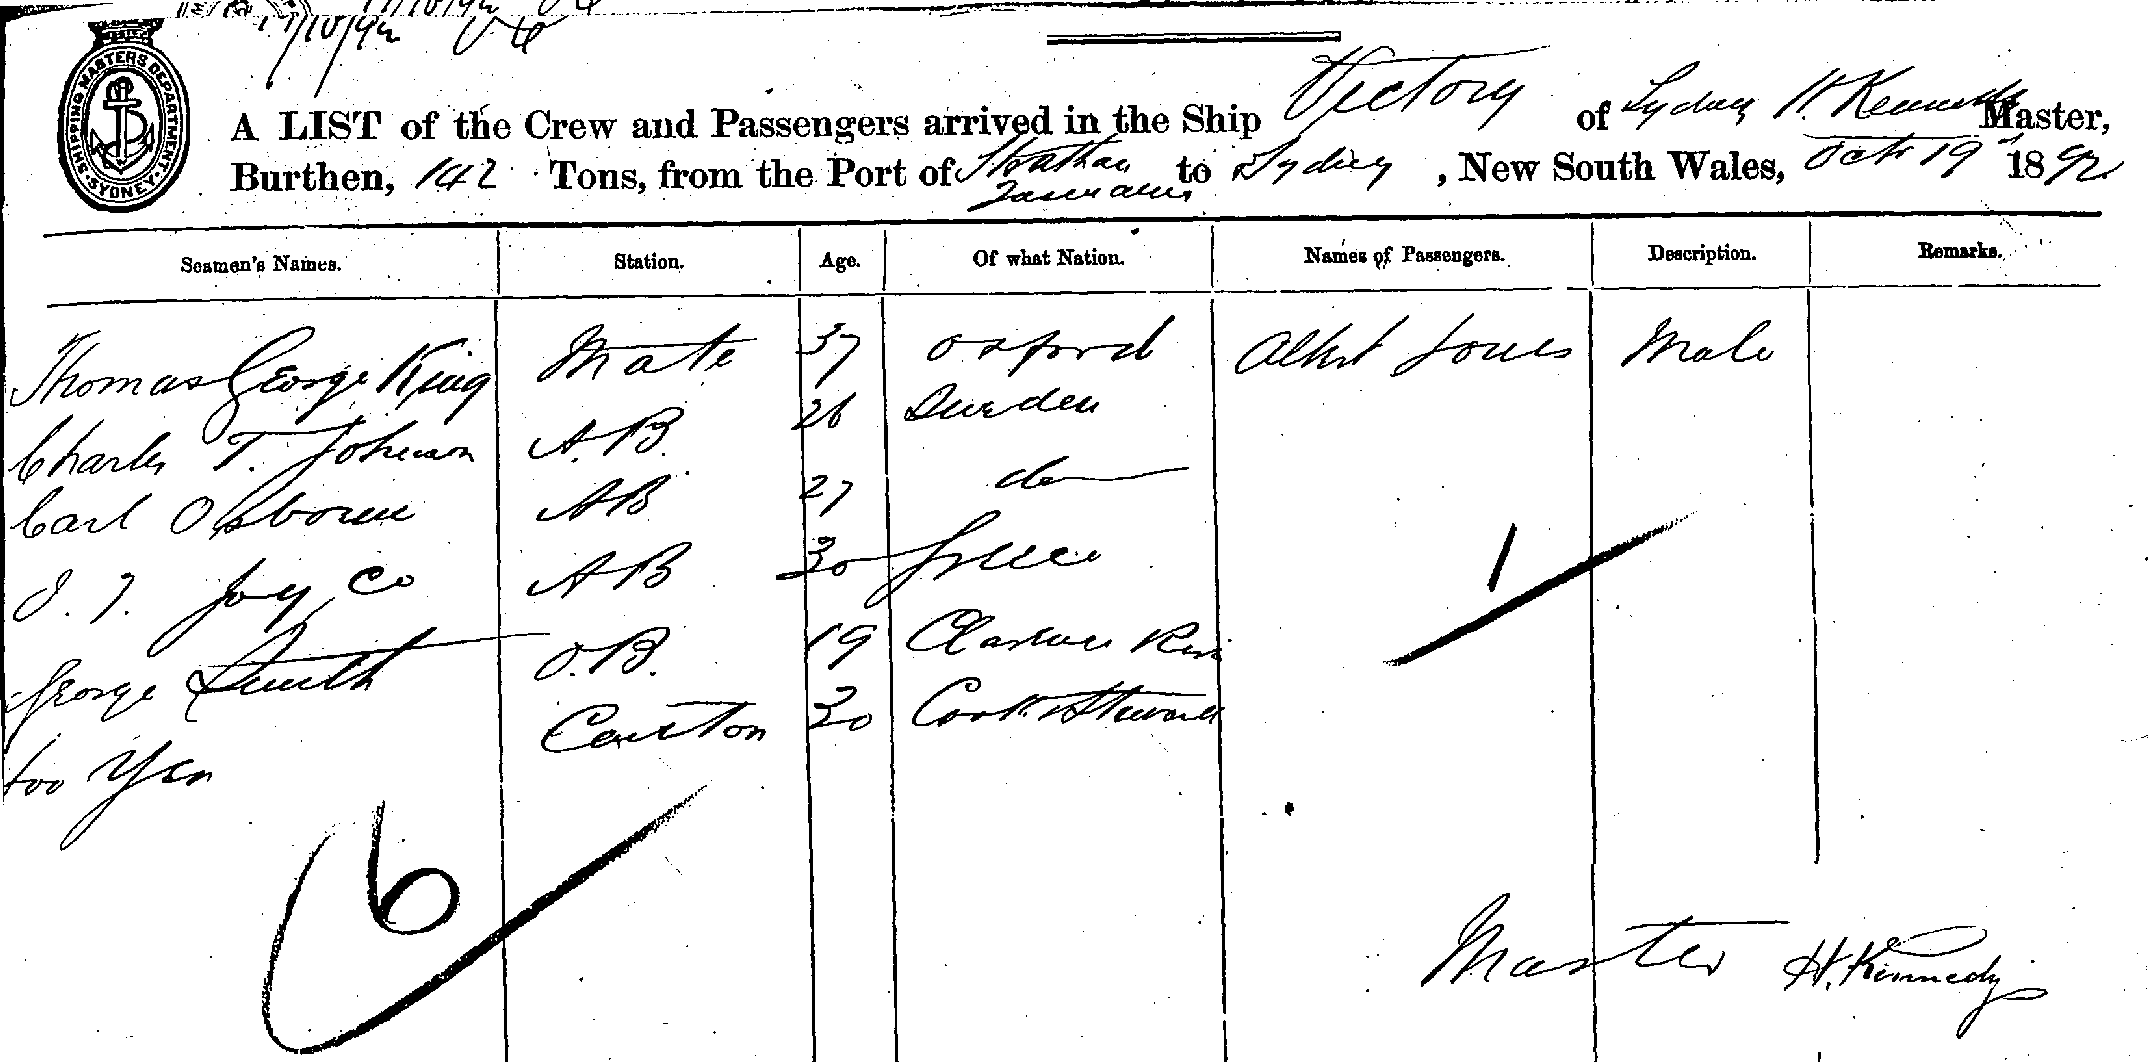 17/10/92
SHIPPING MASTERS DEPARTMENT SYDNEY
A LIST of the Crew and Passengers arrived in the Ship Victory of Sydney H. Kennedy Master,
Burthen, 142 Tons, from the Port of Strahan Tasmania to Sydney, New South Wales, Oct 19 1892
Seamen's Names. Station. Age. Of what Nation. Names of Passengers. Description. Remarks.
Thomas George King Mate 37 Oxford Albert Jones Male
Charles T. Johnson A.B. 26 Sweden
Carl Osborne AB 27 do
Joy Co AB 30 Greece
George Smith O.B. 19 Clarence
Yen Canton 30 Cook & Steward
1
6
Master H. Kennedy